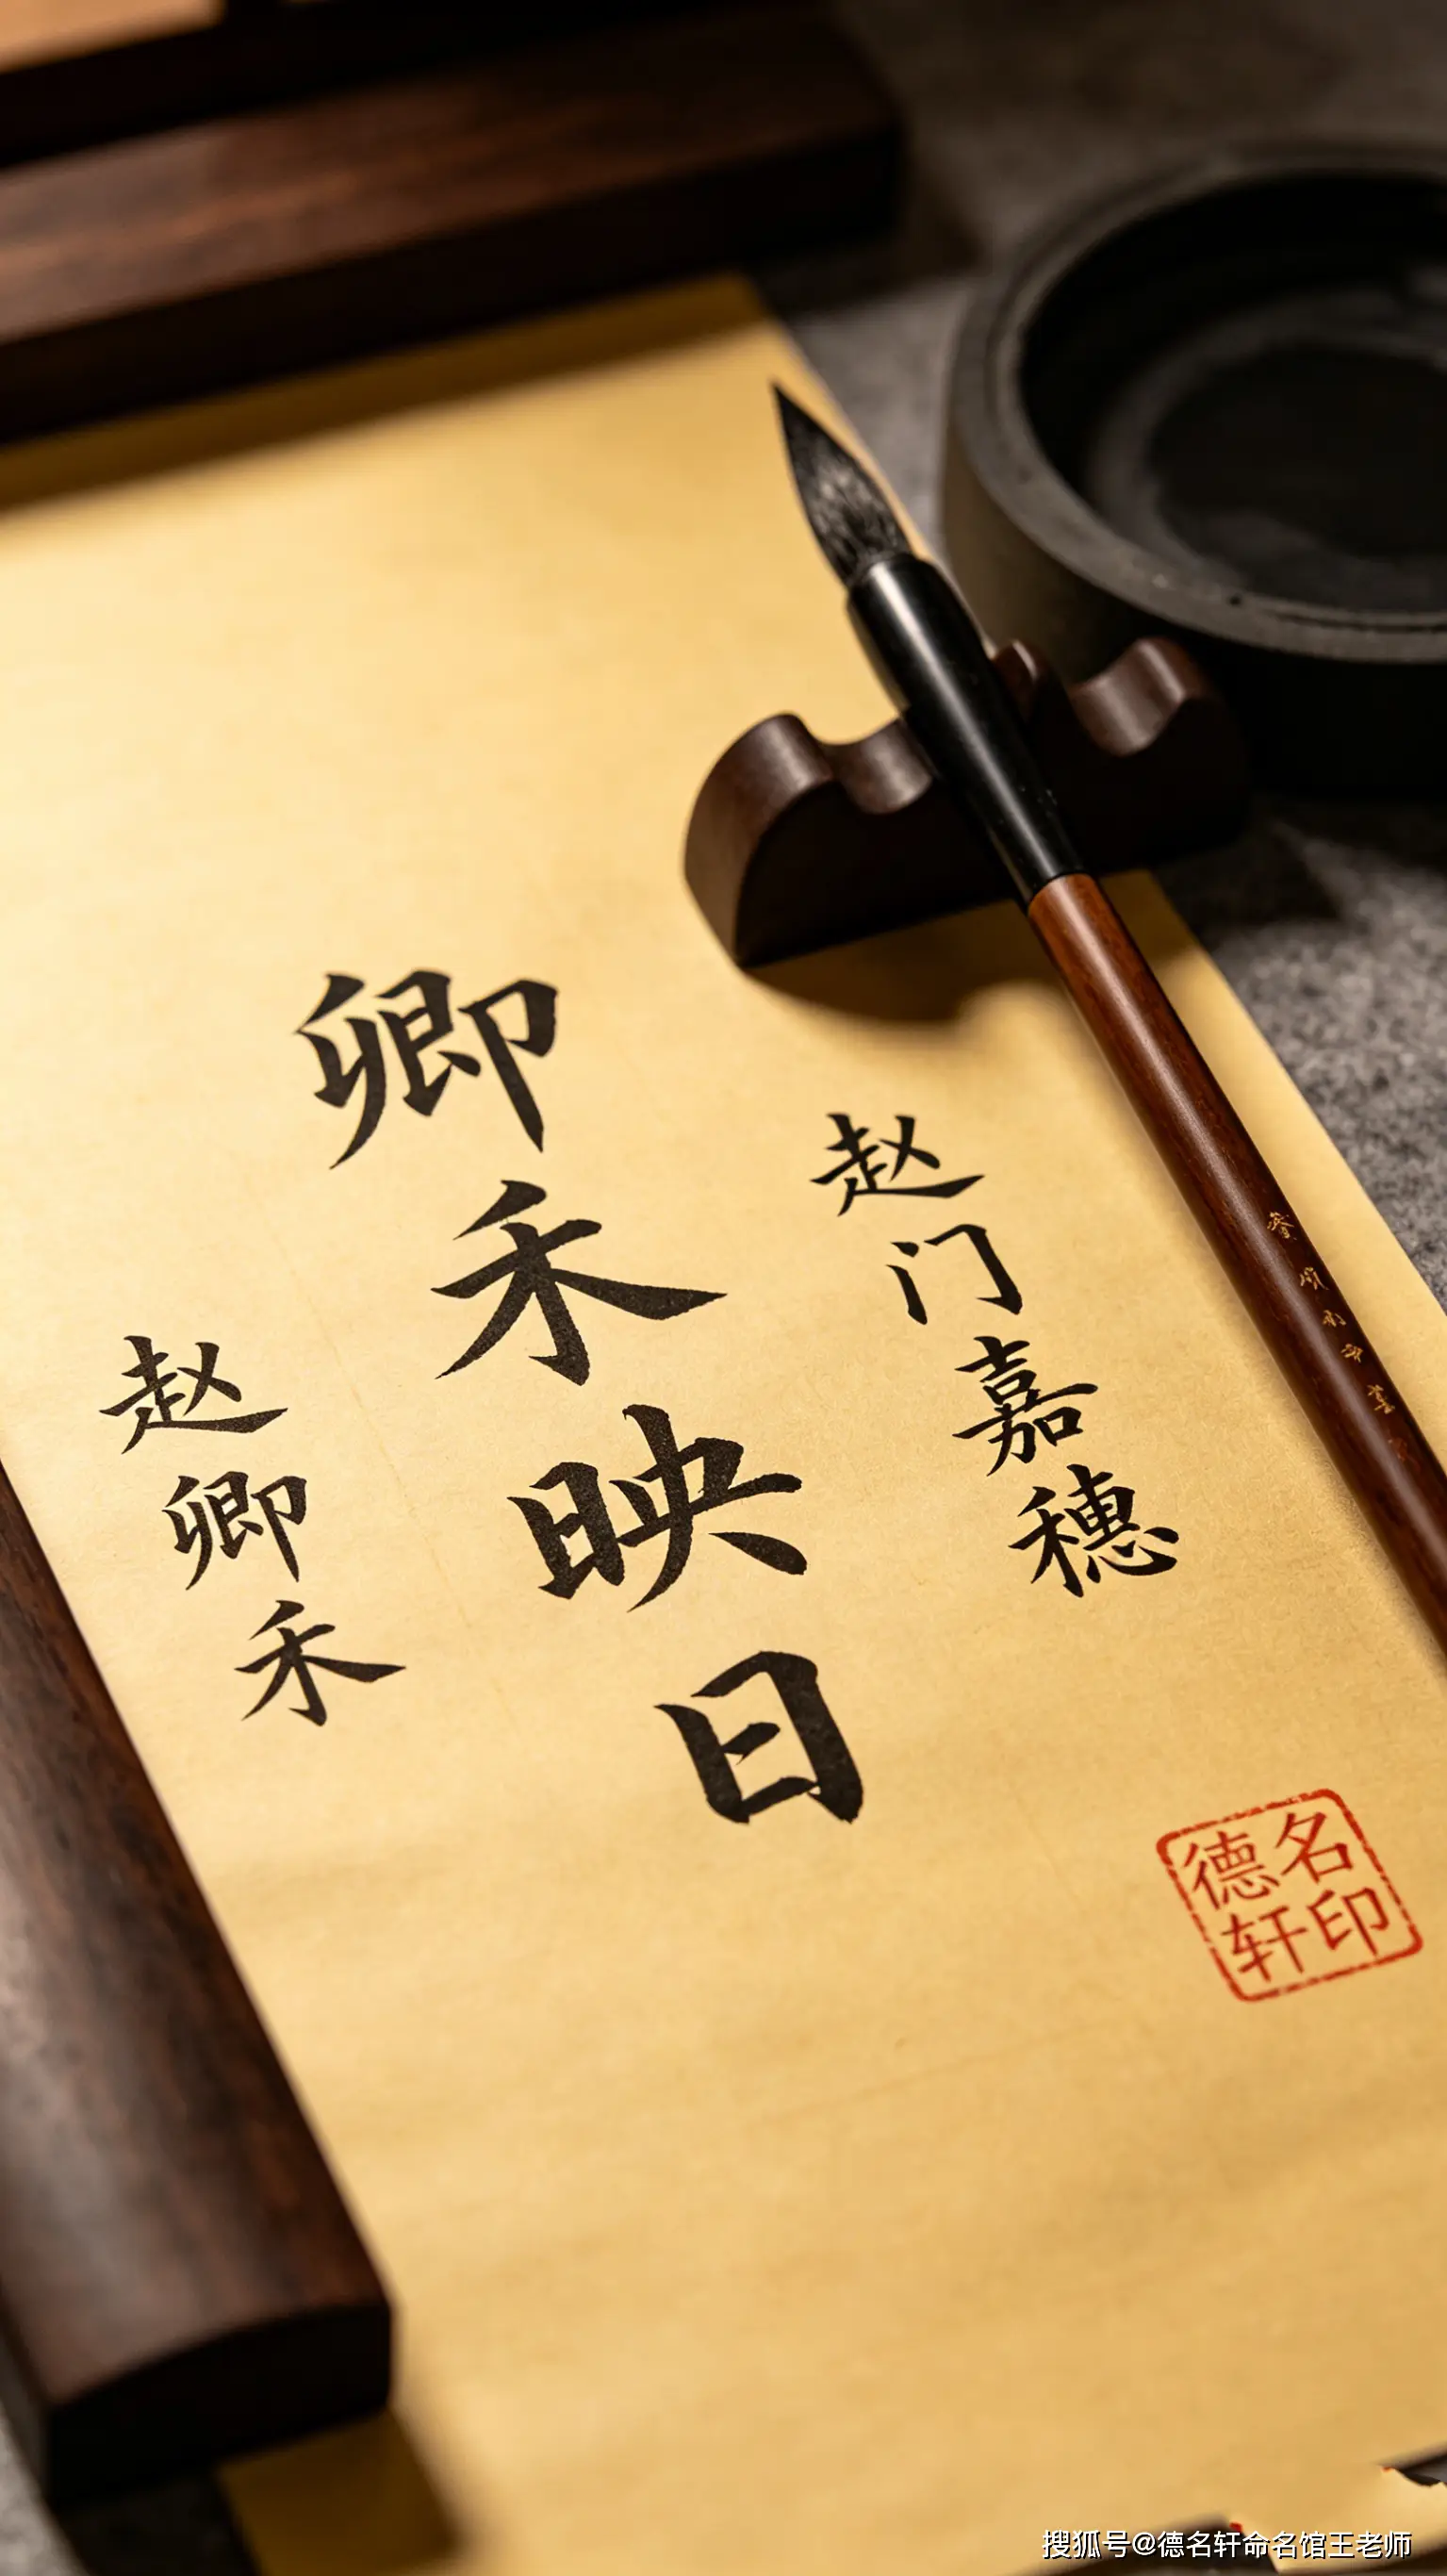 赵门嘉穗
卿禾映日
赵卿禾
德名
轩印
搜狐号@德名轩命名馆王老师